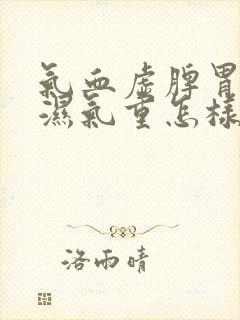 氣血虛脾胃
濕氣重怎樣
洛雨晴